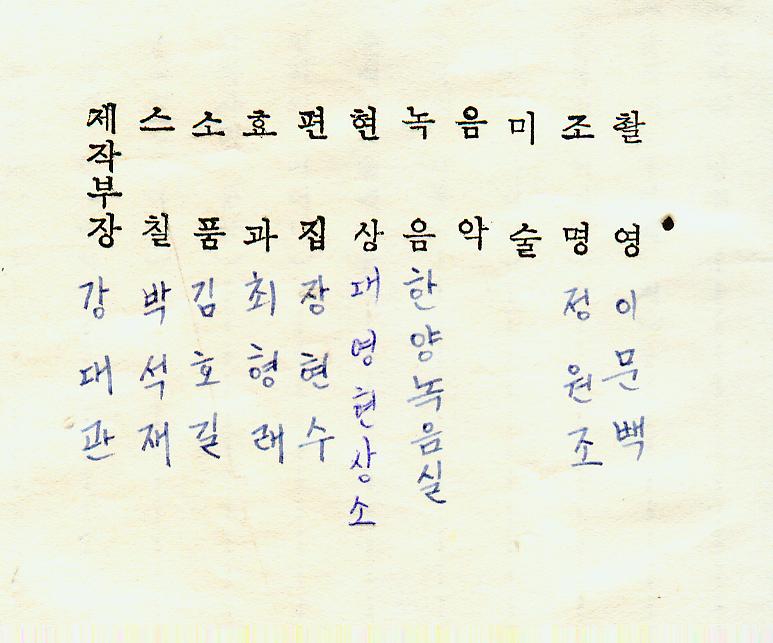 촬영 이문백
조명 정원조
미술
음악
녹음 한양녹음실
현상 대영현상소
편집 장현수
효과 최형래
소품 김호길
스칠 박석재
제작부장 강대관